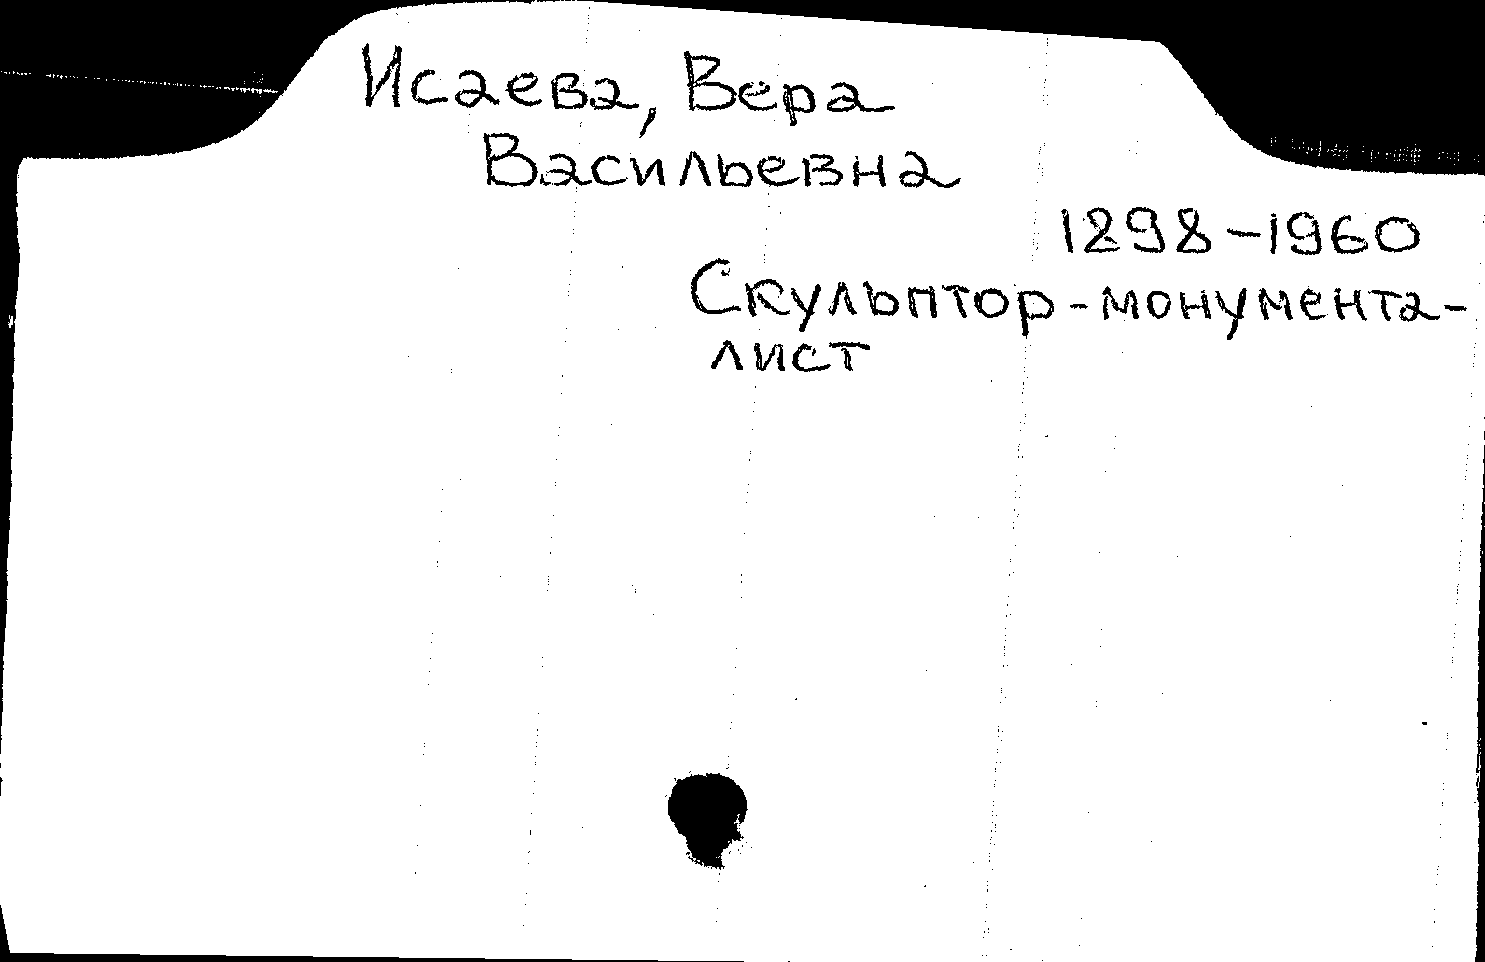 Исаева, Вера
Васильевна
1898-1960
Скульптор-монумента-
лист